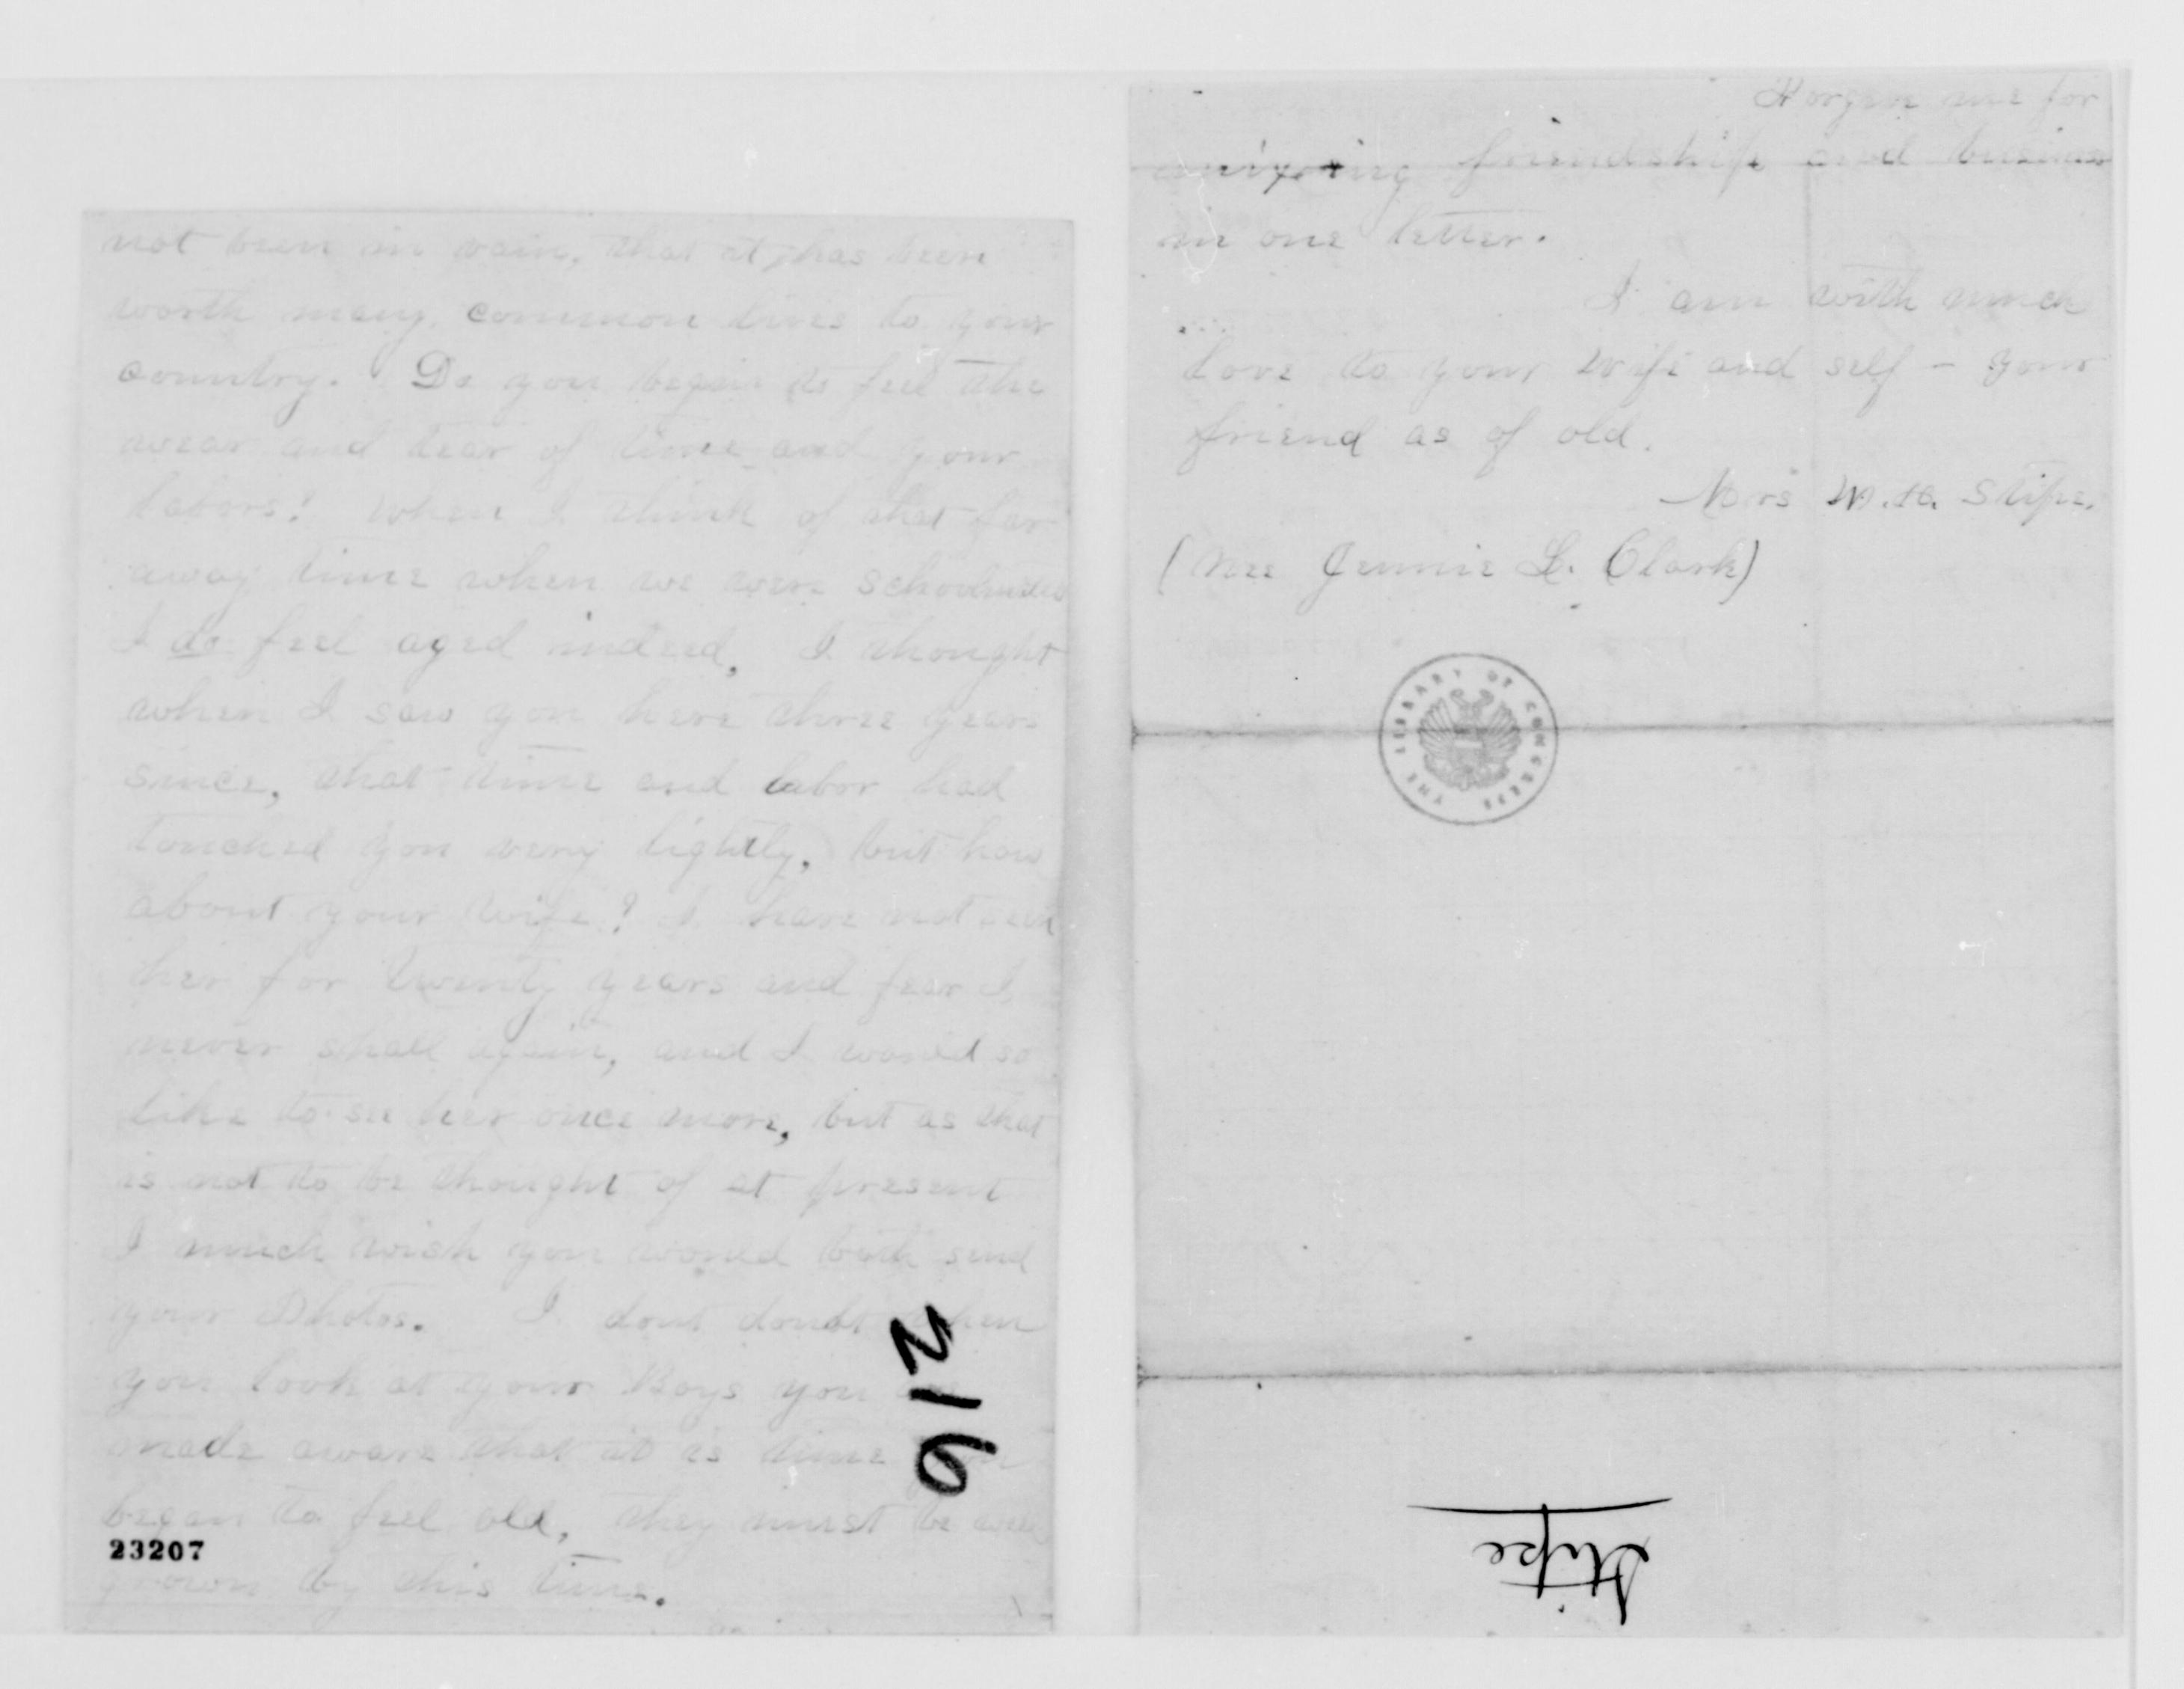 not been in vain, that it has been
worth many common lives to your
country. Do you begin to feel the
wear and tear of time and your
labors? When I think of that far
away time when we were schoolmates
I do feel aged indeed, I thought
when I saw you here three years
since, that time and labor had
touched you very lightly, but how
about your wife? I have not seen
her for twenty years and fear I
never shall again, and I would so
like to see her once more, but as that
is not to be thought of at present
I much wish you would both send
your Photos. I dont doubt when
you look at your Boys you are
made aware that it is time
began to feel old, they must be well
grown by this time.
23207
216
Forgive me for
mixing friendship and business
in one letter.
I am with much
love to your wife and self - your
friend as of old.
Mrs W. H. Stipe.
(nee Jennie L. Clark)
THE LIBRARY OF CONGRESS
Stipe